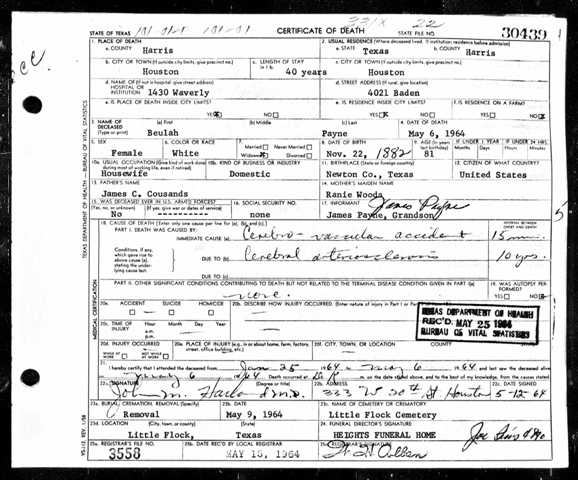 STATE OF TEXAS
CERTIFICATE OF DEATH
22
30439
1. PLACE OF DEATH
2. USUAL RESIDENCE (Where deceased lived. If institution: residence before admission)
a. COUNTY Harris
a. STATE Texas
b. COUNTY Harris
b. CITY OR TOWN (If outside city limits, give precinct no.) Houston
c. LENGTH OF STAY in 1 b 40 years
c. CITY OR TOWN (If outside city limits, give precinct no.) Houston
d. NAME OF (If not in hospital, give street address) HOSPITAL OR INSTITUTION 1430 Waverly
d. STREET ADDRESS (If rural, give location) 4021 Baden
e. IS PLACE OF DEATH INSIDE CITY LIMITS? YES NO
e. IS RESIDENCE INSIDE CITY LIMITS? YES NO
f. IS RESIDENCE ON A FARM? YES NO
3. NAME OF DECEASED (Type or print)
(a) First Beulah
(b) Middle
(c) Last Payne
4. DATE OF DEATH May 6, 1964
5. SEX Female
6. COLOR OR RACE White
7. Married Never Married Widowed Divorced
8. DATE OF BIRTH Nov. 22, 1882
9. AGE (In years last birthday) 81
IF UNDER 1 YEAR Months Days
IF UNDER 24 HRS. Hours Min.
10a. USUAL OCCUPATION (Give kind of work done during most of working life, even if retired) Housewife
10b. KIND OF BUSINESS OR INDUSTRY Domestic
11. BIRTHPLACE (State or foreign country) Newton Co., Texas
12. CITIZEN OF WHAT COUNTRY? United States
13. FATHER'S NAME James C. Cousands
14. MOTHER'S MAIDEN NAME Ranie Woods
15. WAS DECEASED EVER IN U.S. ARMED FORCES? (Yes, no, or unknown) (If yes, give war or dates of service) No
16. SOCIAL SECURITY NO. none
17. INFORMANT James Payne
James Payne, Grandson
18. CAUSE OF DEATH (Enter only one cause per line for (a), (b), and (c).)
INTERVAL BETWEEN ONSET AND DEATH
PART I. DEATH WAS CAUSED BY:
IMMEDIATE CAUSE (a) Cerebro-vascular accident 15 min.
Conditions, if any, which gave rise to above cause (a), stating the underlying cause last.
DUE TO (b) Cerebral arteriosclerosis 10 yrs.
DUE TO (c)
PART II. OTHER SIGNIFICANT CONDITIONS CONTRIBUTING TO DEATH BUT NOT RELATED TO THE TERMINAL DISEASE CONDITION GIVEN IN PART I(a)
none.
19. WAS AUTOPSY PERFORMED? YES NO
20a. ACCIDENT SUICIDE HOMICIDE
20b. DESCRIBE HOW INJURY OCCURRED. (Enter nature of injury in Part I or Part II
20c. TIME OF INJURY Hour Month Day Year a.m. p.m.
TEXAS DEPARTMENT OF HEALTH
REC'D MAY 25 1964
BUREAU OF VITAL STATISTICS
20d. INJURY OCCURRED WHILE AT WORK NOT WHILE AT WORK
20e. PLACE OF INJURY (e.g., in or about home, farm, factory, street, office building, etc.)
20f. CITY, TOWN, OR LOCATION COUNTY
21. I hereby certify that I attended the deceased from Jan 25 1964 to May 6 1964 and last saw the deceased alive
Death occurred at m. on the date stated above, and to the best of my knowledge, from the causes stated
22a. SIGNATURE (Degree or title) John M.
22b. ADDRESS 333 W 20th St Houston
22c. DATE SIGNED 5-12-64
23a. BURIAL, CREMATION, REMOVAL (Specify) Removal
23b. DATE May 9, 1964
23c. NAME OF CEMETERY OR CREMATORY Little Flock Cemetery
23d. LOCATION (City, town, or county) (State) Little Flock, Texas
24. FUNERAL DIRECTOR'S SIGNATURE
HEIGHTS FUNERAL HOME
25a. REGISTRAR'S FILE NO. 3558
25b. DATE REC'D BY LOCAL REGISTRAR MAY 15, 1964
25c. REGISTRAR'S SIGNATURE
TEXAS DEPARTMENT OF HEALTH — BUREAU OF VITAL STATISTICS
MEDICAL CERTIFICATION